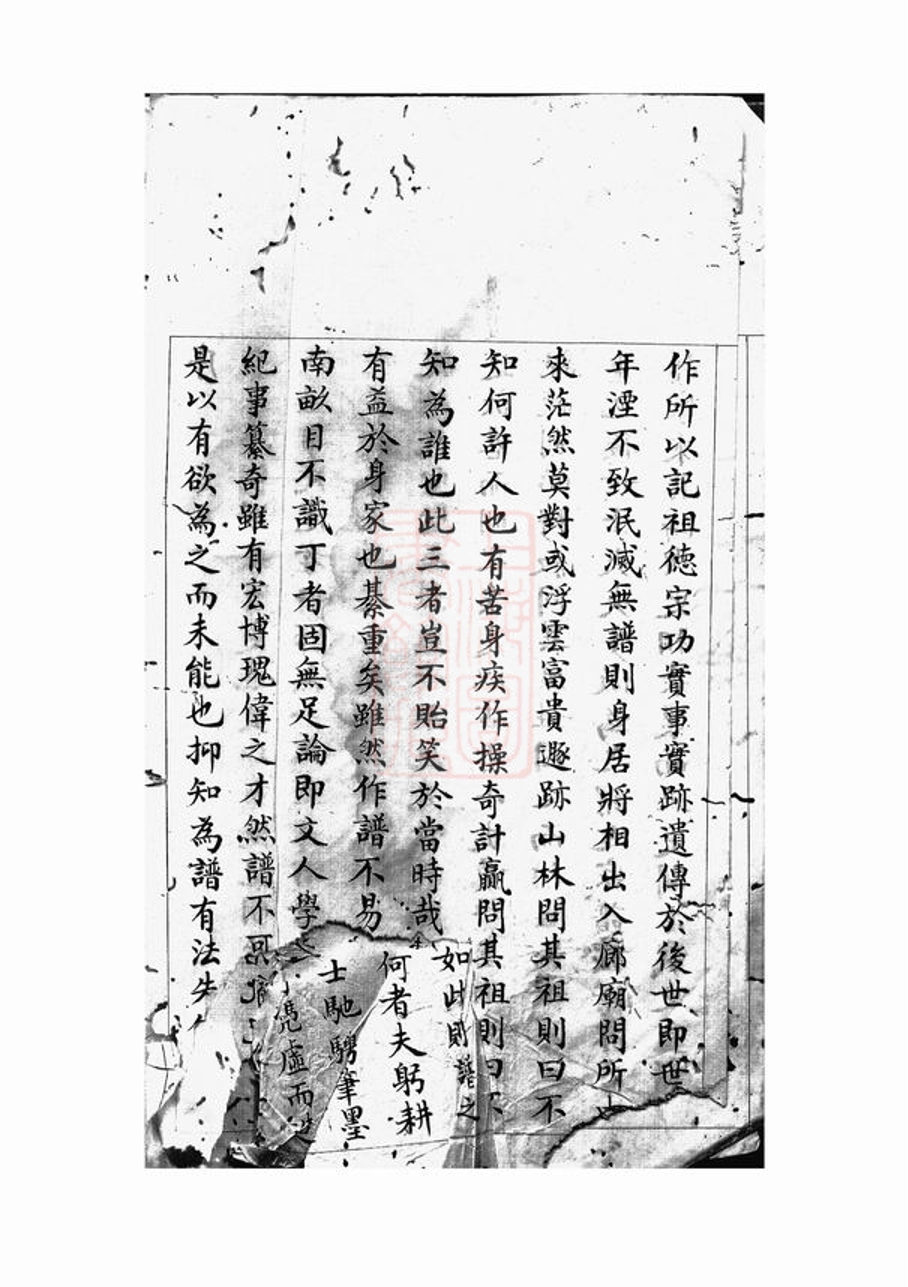 作所以記祖德宗功實事實跡遺傳於後世即世
年湮不致泯滅無譜則身居將相出入廊廟問所
來茫然莫對或浮雲富貴遯跡山林問其祖則曰不
知何許人也有苦身疾作操奇計贏問其祖則曰不
知為誰也此三者豈不貽笑於當時哉如此則譜之
有益於身家也綦重矣雖然作譜不易何者夫躬耕
南畝目不識丁者固無足論即文人學士馳騁筆墨
紀事纂奇雖有宏博瑰偉之才然譜不可憑虛而造
是以有欲為之而未能也抑知為譜有法失
上海圖書館藏